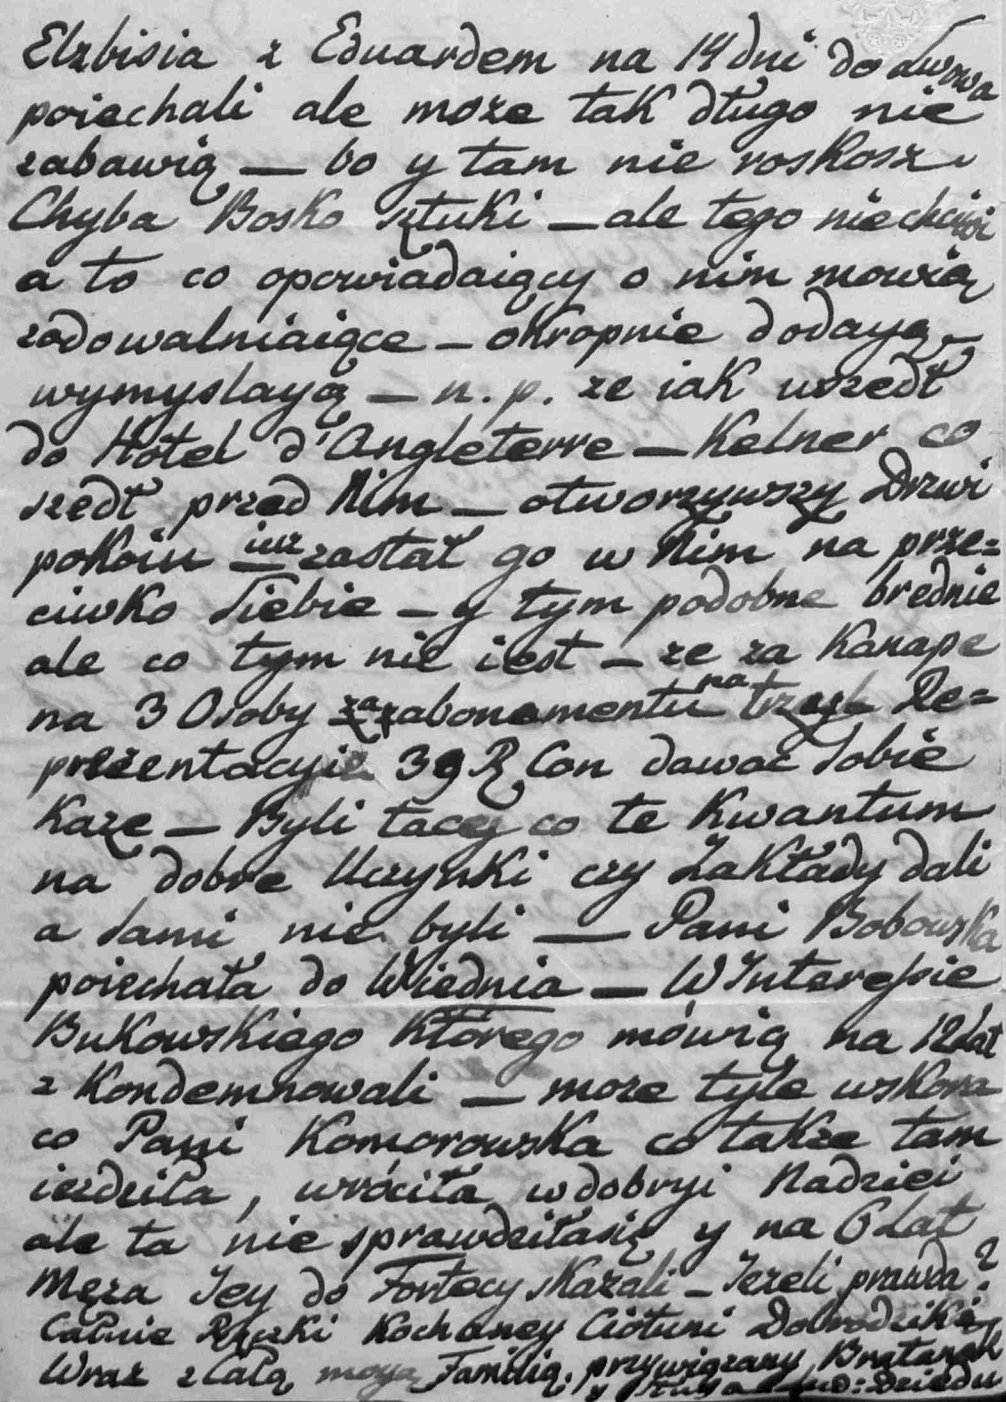 Elzbisia z Eduardem na 14 dni do Lwowa
poiechali ale moze tak długo nie
zabawią — bo y tam nie roskosz
Chyba Bosko sztuki — ale tego nie
a to co opowiadaiący o nim mowią
zadowalniaiące — okropnie dodayą
wymyslayą — n. p. ze iak wszedł
do Hotel d'Angleterre — Kelner co
szedł przed Nim — otworzywszy Drzwi
pokoiu iuz zastał go w Nim na prze=
ciwko Siebie — y tym podobne brednie
ale co tym nie iest — ze za Kanape
na 3 Osoby za abonamentu na trzech Re=
prezentacyie 39 R Con dawac Sobie
Kaze — Byli tacy co te Kwantum
na dobre Uczynki czy Zakłady dali
a Sami nie byli — Pani Bobowska
poiechała do Wiednia — W Interessie
Bukowskiego Którego mówią na 12 Lat
z Kondemnowali — moze tyle wskora
co Pani Komorowska co takze tam
iezdziła, wróciła w dobryi Nadziei
ale ta nie sprawdziłasię y na 6 Lat
Męza Jey do Fortecy Skazali — Jezeli prawda?
Całuie Rączki Kochaney Ciotuni Dobrodziki
Wraz z Całą moyą Familią. przywiązany Bratanek
y Sługa